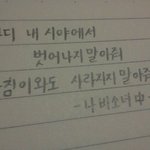 내 시야에서
벗어나지 말아줘
아침이와도 사라지지 말아줘
-나비소녀 中-